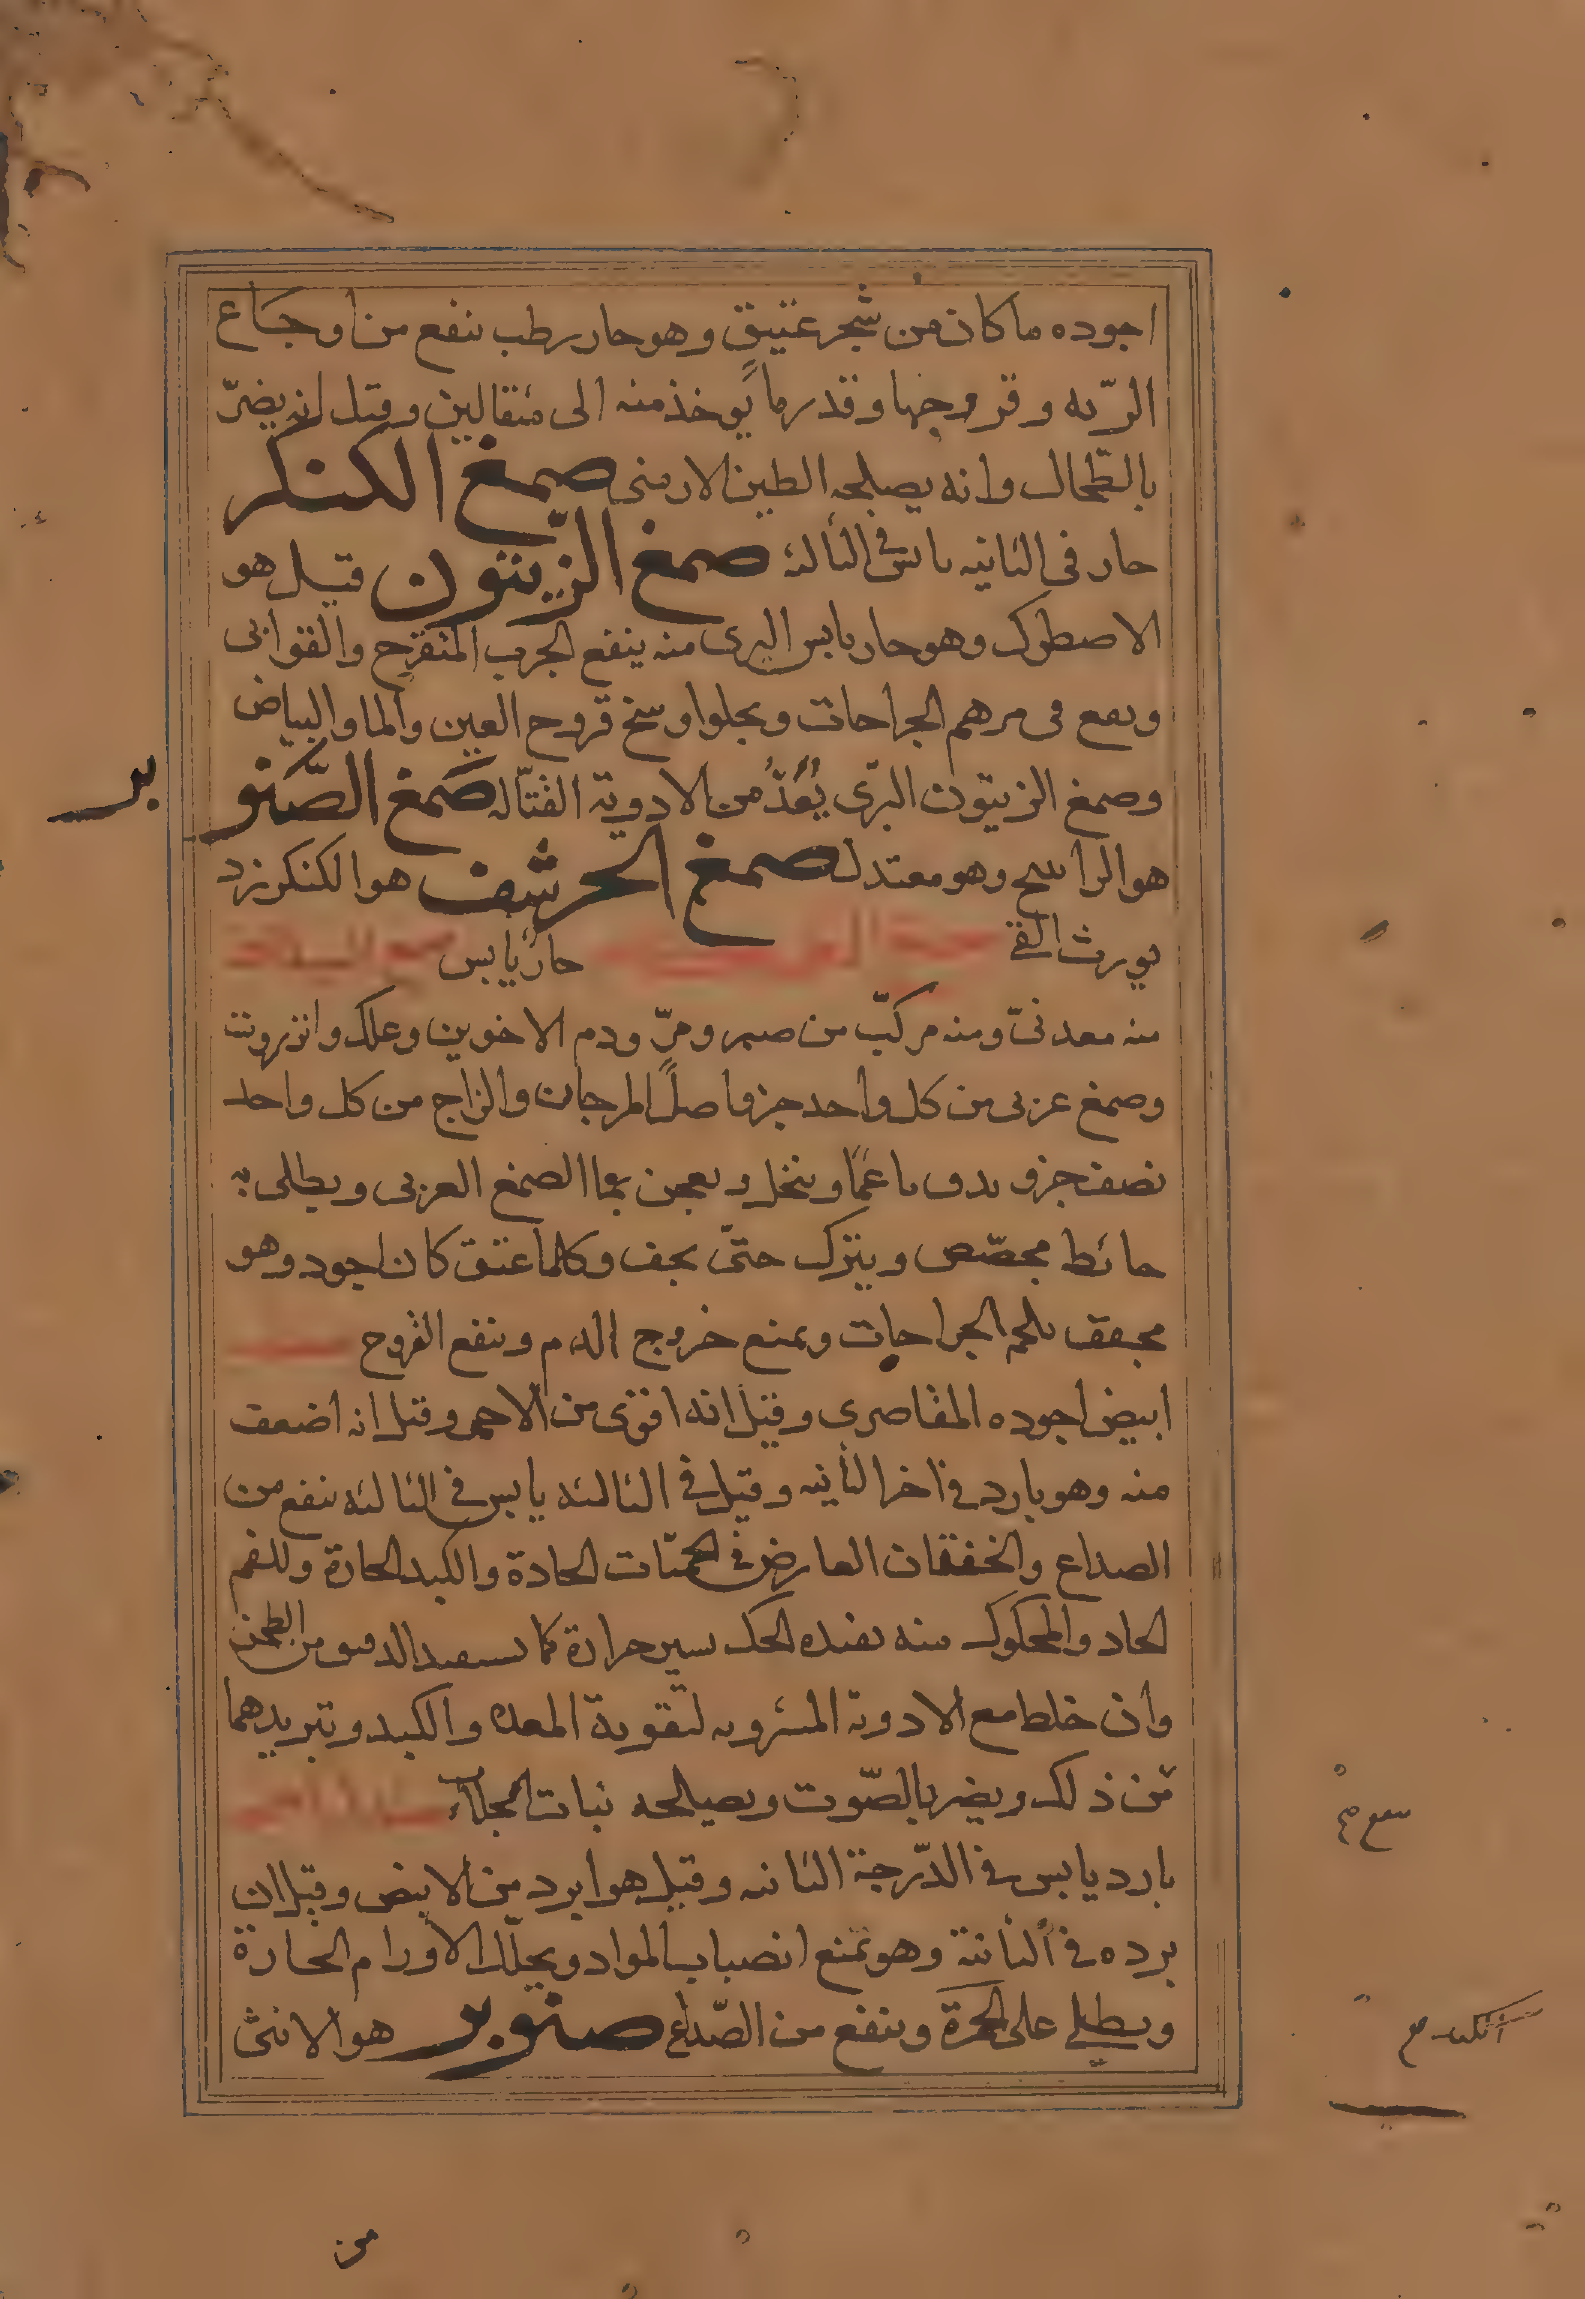 اجوده ما كان من شجر عتيق وهو حار رطب ينفع من اوجاع
الرّيه وقروحها وقدر ما يوخذ منه الى مثقالين وقيل انه يضرّ
بالطّحال وانه يصلحه الطين الارمنى صمغ الكنكر
حار فى الثانيه يابس فى الثالثه صمغ الزيتون قيل هو
الاصطرك وهو حار يابس البرى منه ينفع الجرب المتقرح والقوابى
ويقع فى مرهم الجراحات ويجلوا وسخ قروح العين والما والبياض
وصمغ الزيتون البرّى يُعَدُّ من الادوية القتّاله صمغ الصّنوبر
هو الراتينج وهو معتدل صمغ الحرشف هو الكنكرزد
يورث القئ حارّ يابس
منه معدنىّ ومنه مركّب من صبر ومرّ ودم الاخوين وعلك وانزروت
وصمغ عربى من كل واحد جزو اصل المرجان والزاج من كل واحد
نصف جزو يدق ناعمًا وينخل ويعجن بما الصمغ العربى ويطلى به
حائط مجصّص ويترك حتىّ يجف وكلما عتق كان اجود وهو
مجفف يلحم الجراحات ويمنع خروج الدم وينفع القروح
ابيض اجوده المقاصرى وقيل انه اقوى من الاحمر وقيل انه اضعف
منه وهو بارد فى اخر الثانيه وقيل فى الثالثه يابس فى الثالثه ينفع من
الصداع والخفقان العارض فى الحميّات الحادة والكبد الحارة وللفم
الحاد والمحكوك منه يفيده الحك يسير حرارة كما يستفيد الدقيق من الطحن
وان خلط مع الادوية المشروبه لتقوية المعده والكبد وتبريدهما
من ذلك ويضر بالصّوت ويصلحه نبات الجلاب
بارد يابس فى الدّرجة الثانيه وقيل هو ابرد من الابيض وقيل ان
برده فى الثانية وهو يمنع انصباب المواد ويحلّل الاورام الحارة
ويطلى على الحمرة وينفع من الصّداع صنوبر هو الانثى
من